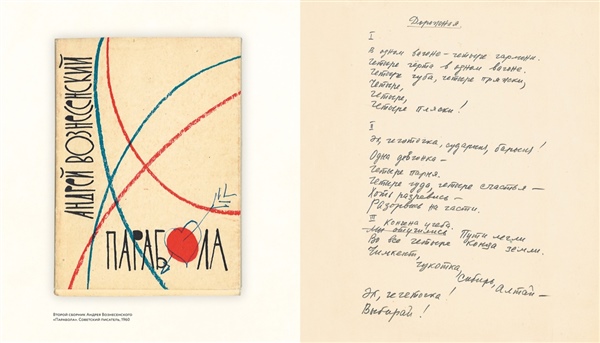 АНДРЕЙ ВОЗНЕСЕНСКИЙ
ПАРАБОЛА
Второй сборник Андрея Вознесенского
«Парабола». Советский писатель, 1960
Дорожная.
I
В одном вагоне – четыре гармони.
Четыре горла в одном вагоне.
Четыре чуба, четыре пряжки,
Четыре,
Четыре,
Четыре пляски!
II
Эх, чечеточка, сударыня, барыня!
Одна девчонка –
Четыре парня.
Четыре чуда, четыре счастья –
Хоть разорвись –
на части.
III Кончена учеба.
Мы отучились Пути легли
Во все четыре конца земли.
Чимкент,
Чукотка,
Сибирь,
Алтай –
Эх, чечеточка!
Выбирай!